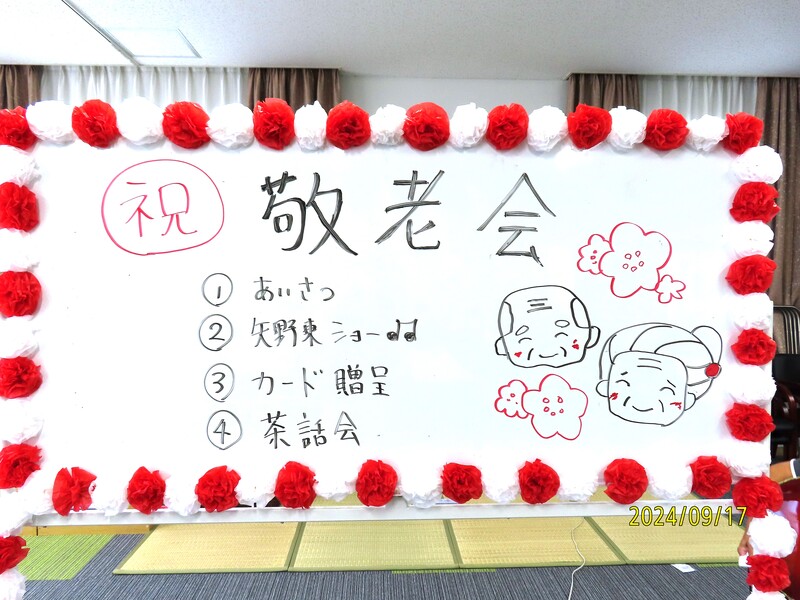 祝 敬老会
① あいさつ
② 矢野東ショー♫
③ カード贈呈
④ 茶話会
2024/09/17